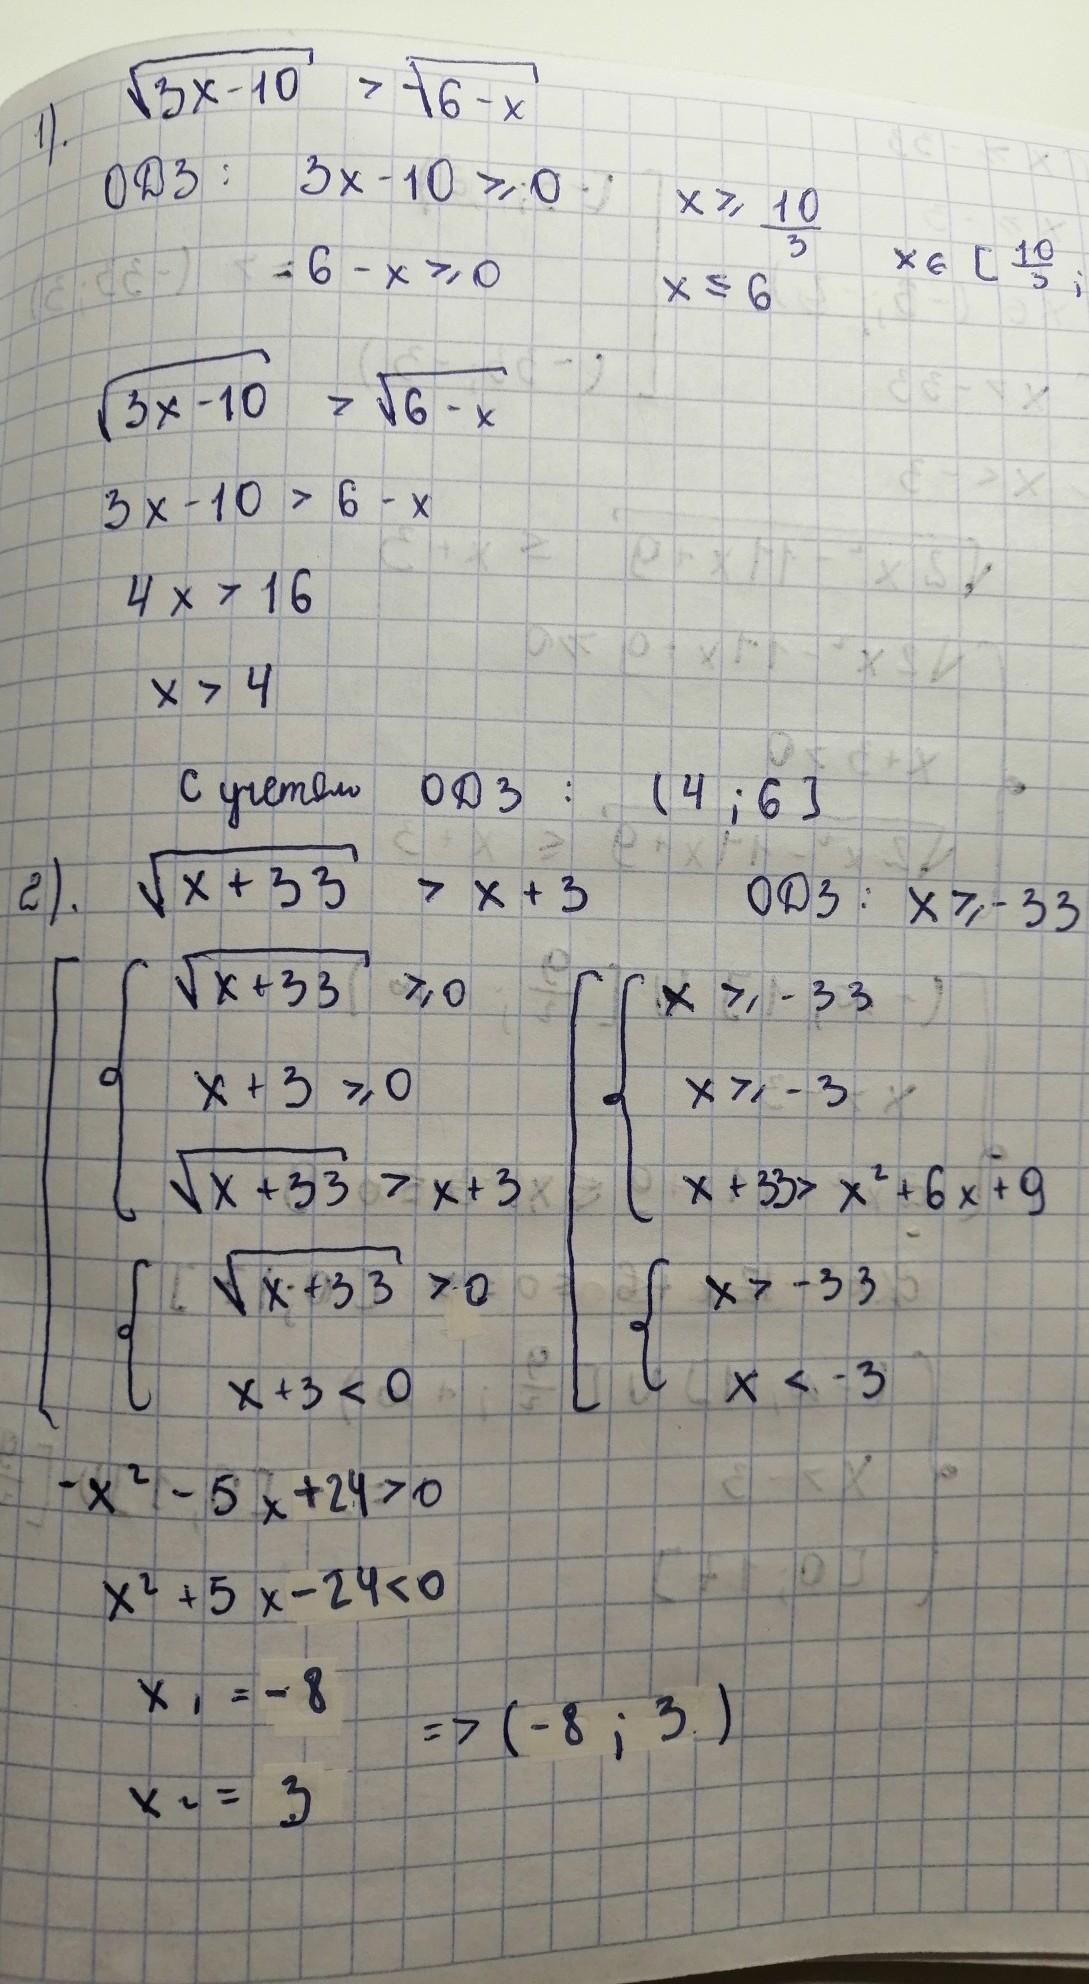 1). √3x-10 > √6-x
ОДЗ: 3x-10 ⩾ 0 x ⩾ 10/3
6-x ⩾ 0 x ≤ 6 x ∈ [10/3;
√3x-10 > √6-x
3x-10 > 6-x
4x > 16
x > 4
С учетом ОДЗ: (4;6]
2). √x+33 > x+3 ОДЗ: x ⩾ -33
√x+33 ⩾ 0 x ⩾ -33
x+3 ⩾ 0 x ⩾ -3
√x+33 > x+3 x+33 > x²+6x+9
√x+33 > 0 x > -33
x+3 < 0 x < -3
-x²-5x+24>0
x²+5x-24<0
x₁ = -8
=> (-8; 3)
x₂ = 3